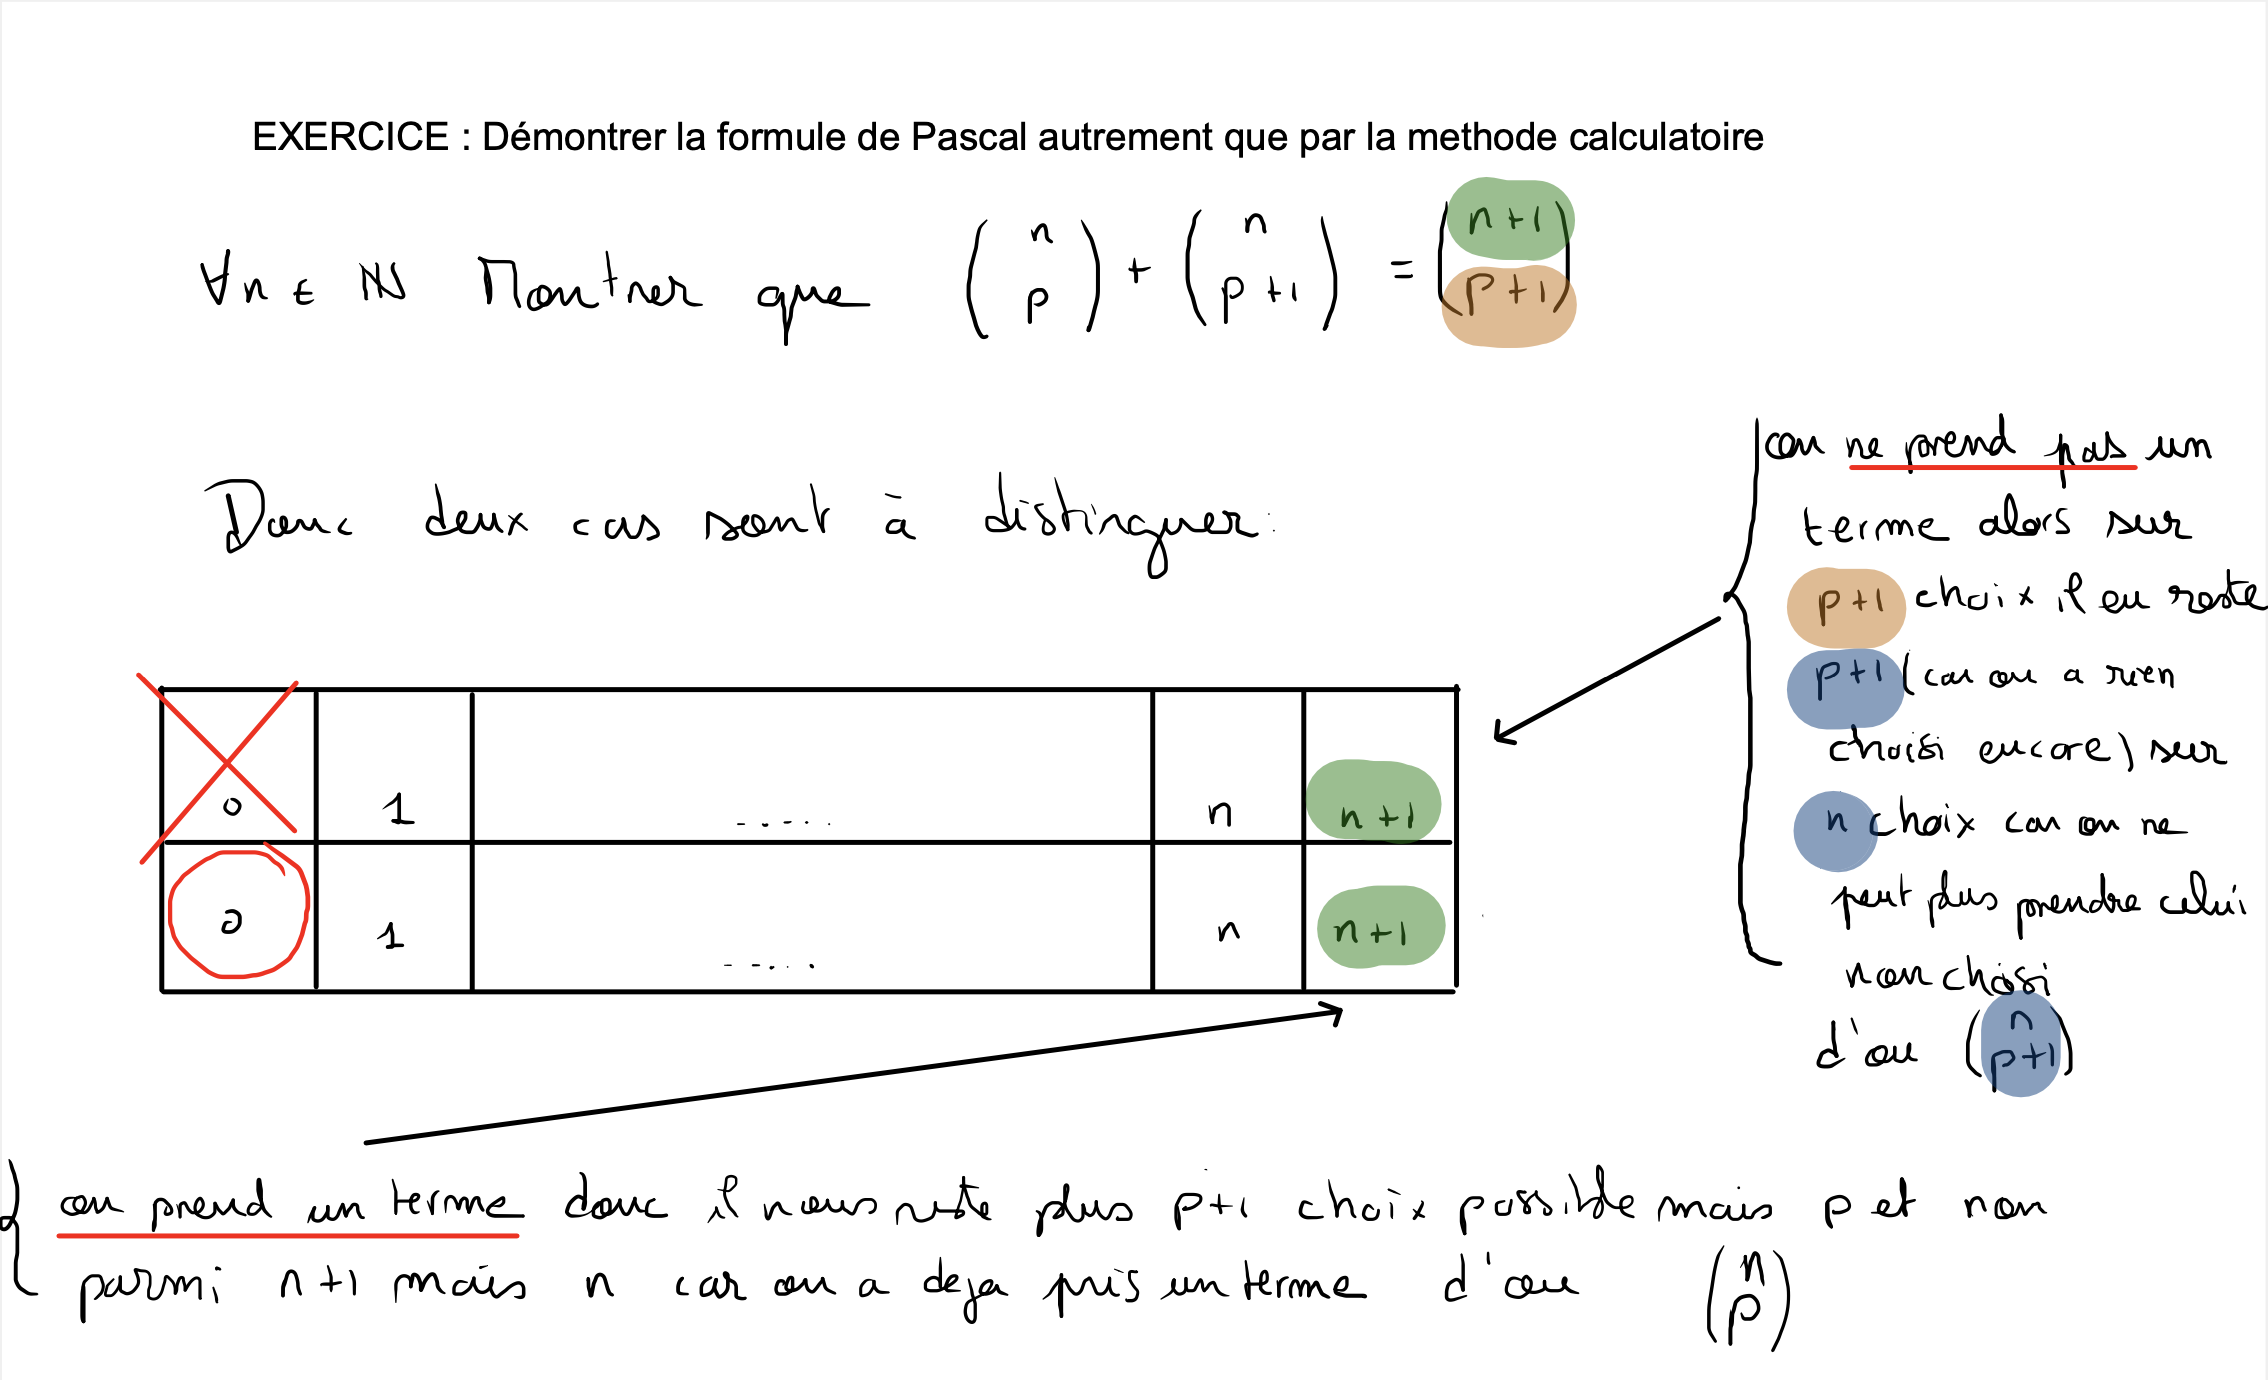 EXERCICE : Démontrer la formule de Pascal autrement que par la methode calculatoire
∀n ∈ ℕ Montrer que (n p) + (n p+1) = (n+1 p+1)
Donc deux cas sont à distinguer:
on ne prend pas un
terme alors sur
p+1 choix il en reste
p+1 (car on a rien
choisi encore) sur
n choix car on ne
peut plus prendre celui
non choisi
d'ou (n p+1)
0 1 ..... n n+1
0 1 ..... n n+1
on prend un terme donc il nous reste plus p+1 choix possible mais p et non
parmi n+1 mais n car on a deja pris un terme d'ou (n p)